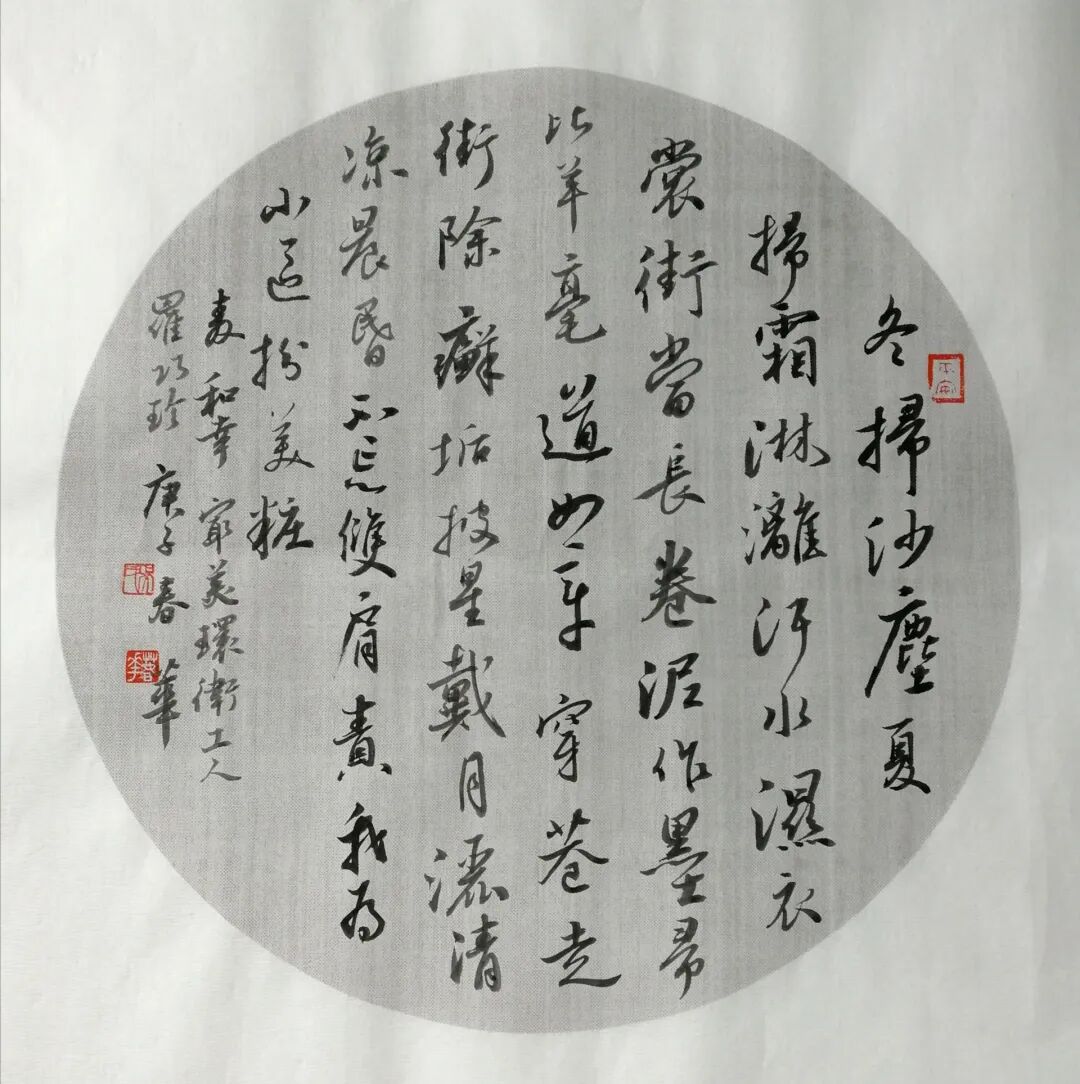 冬掃沙塵夏
掃霜淋灕汗水濕衣
裳街當長卷泥作墨帚
比羊毫道如穿巷走
街除癬垢披星戴月灑清
凉晨昏不忘雙肩責我為
小區扮美粧
和幸最美環衛工人
羅巧珍 庚子春華
平安